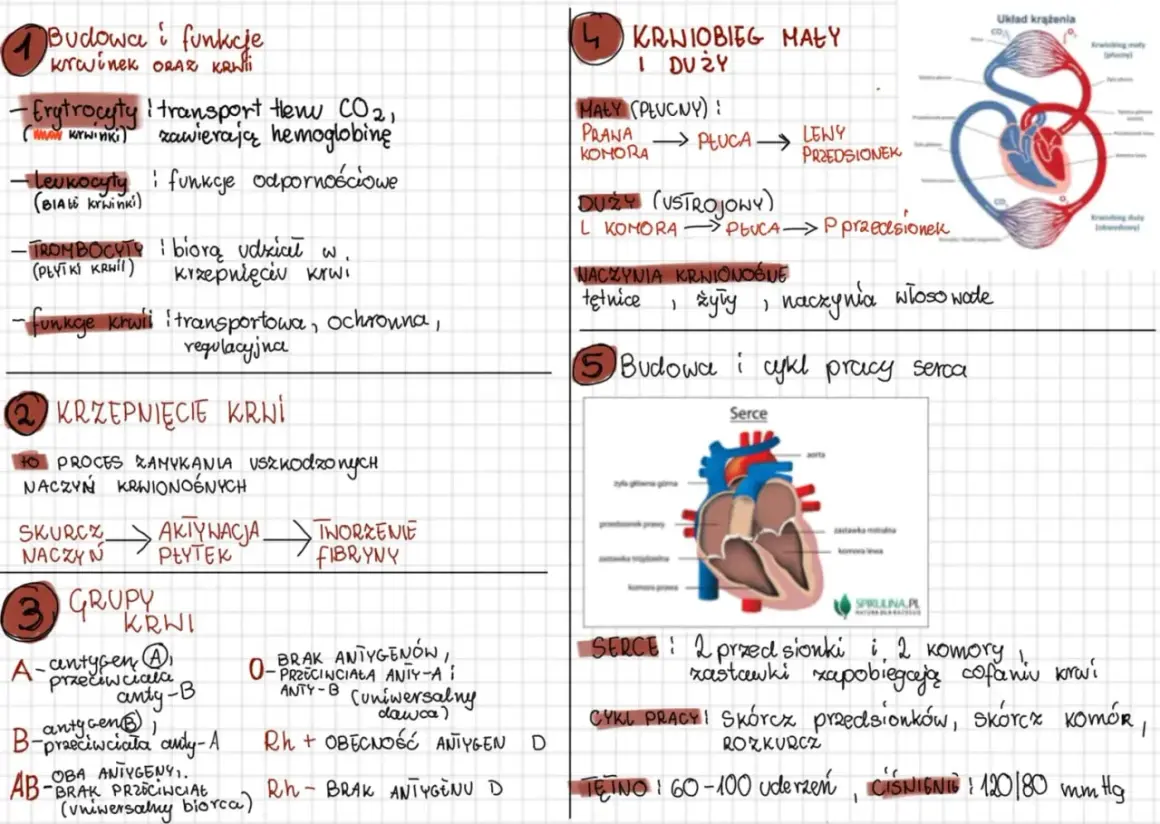 1 Budowa i funkcje
krwinek ORAZ KRWI
- Erytrocyty : transport tlenu CO2,
( krwinki) zawierają hemoglobinę
- Leukocyty : funkcje odpornościowe
(BIAŁE krwinki)
- TROMBOCYTY : biorą udział w
(PŁYTKI KRWII) krzepnięciu krwi
- funkcje krwii : transportowa, ochronna,
regulacyjna
2 KRZEPNIĘCIE KRWI
to PROCES ZAMYKANIA USZKODZONYCH
NACZYŃ KRWIONOŚNYCH
SKURCZ NACZYŃ → AKTYWACJA PŁYTEK → TWORZENIE FIBRYNY
3 GRUPY
KRWI
A - antygen A,
przeciwciała
anty-B
B - antygen B,
przeciwciała anty-A
AB - OBA ANTYGENY,
BRAK PRZECIWCIAŁ
(uniwersalny biorca)
O - BRAK ANTYGENÓW,
PRZECIWCIAŁA ANTY-A i
ANTY-B (uniwersalny
dawca)
Rh + OBECNOŚĆ ANTYGEN D
Rh - BRAK ANTYGENU D
4 KRWIOBIEG MAŁY
I DUŻY
MAŁY (PŁUCNY) :
PRAWA KOMORA → PŁUCA → LEWY PRZEDSIONEK
DUŻY (USTROJOWY)
L KOMORA → PŁUCA → P przedsionek
NACZYNIA KRWIONOŚNE
tętnice, żyły, naczynia włosowate
Układ krążenia
CO2
O2
Krwiobieg mały
(płucny)
CO2
O2
Krwiobieg duży
(obwodowy)
5 Budowa i cykl pracy serca
Serce
aorta
żyła główna górna
przedsionek prawy
zastawka mitralna
komora lewa
zastawka trójdzielna
komora prawa
SPIRULINA.PL
NATURA DLA KAŻDEGO
SERCE : 2 przedsionki i 2 komory,
zastawki zapobiegają cofaniu krwi
CYKL PRACY : Skórcz przedsionków, skórcz KOMÓR,
ROZKURCZ
TĘTNO : 60-100 uderzeń, CIŚNIENIE : 120/80 mmHg